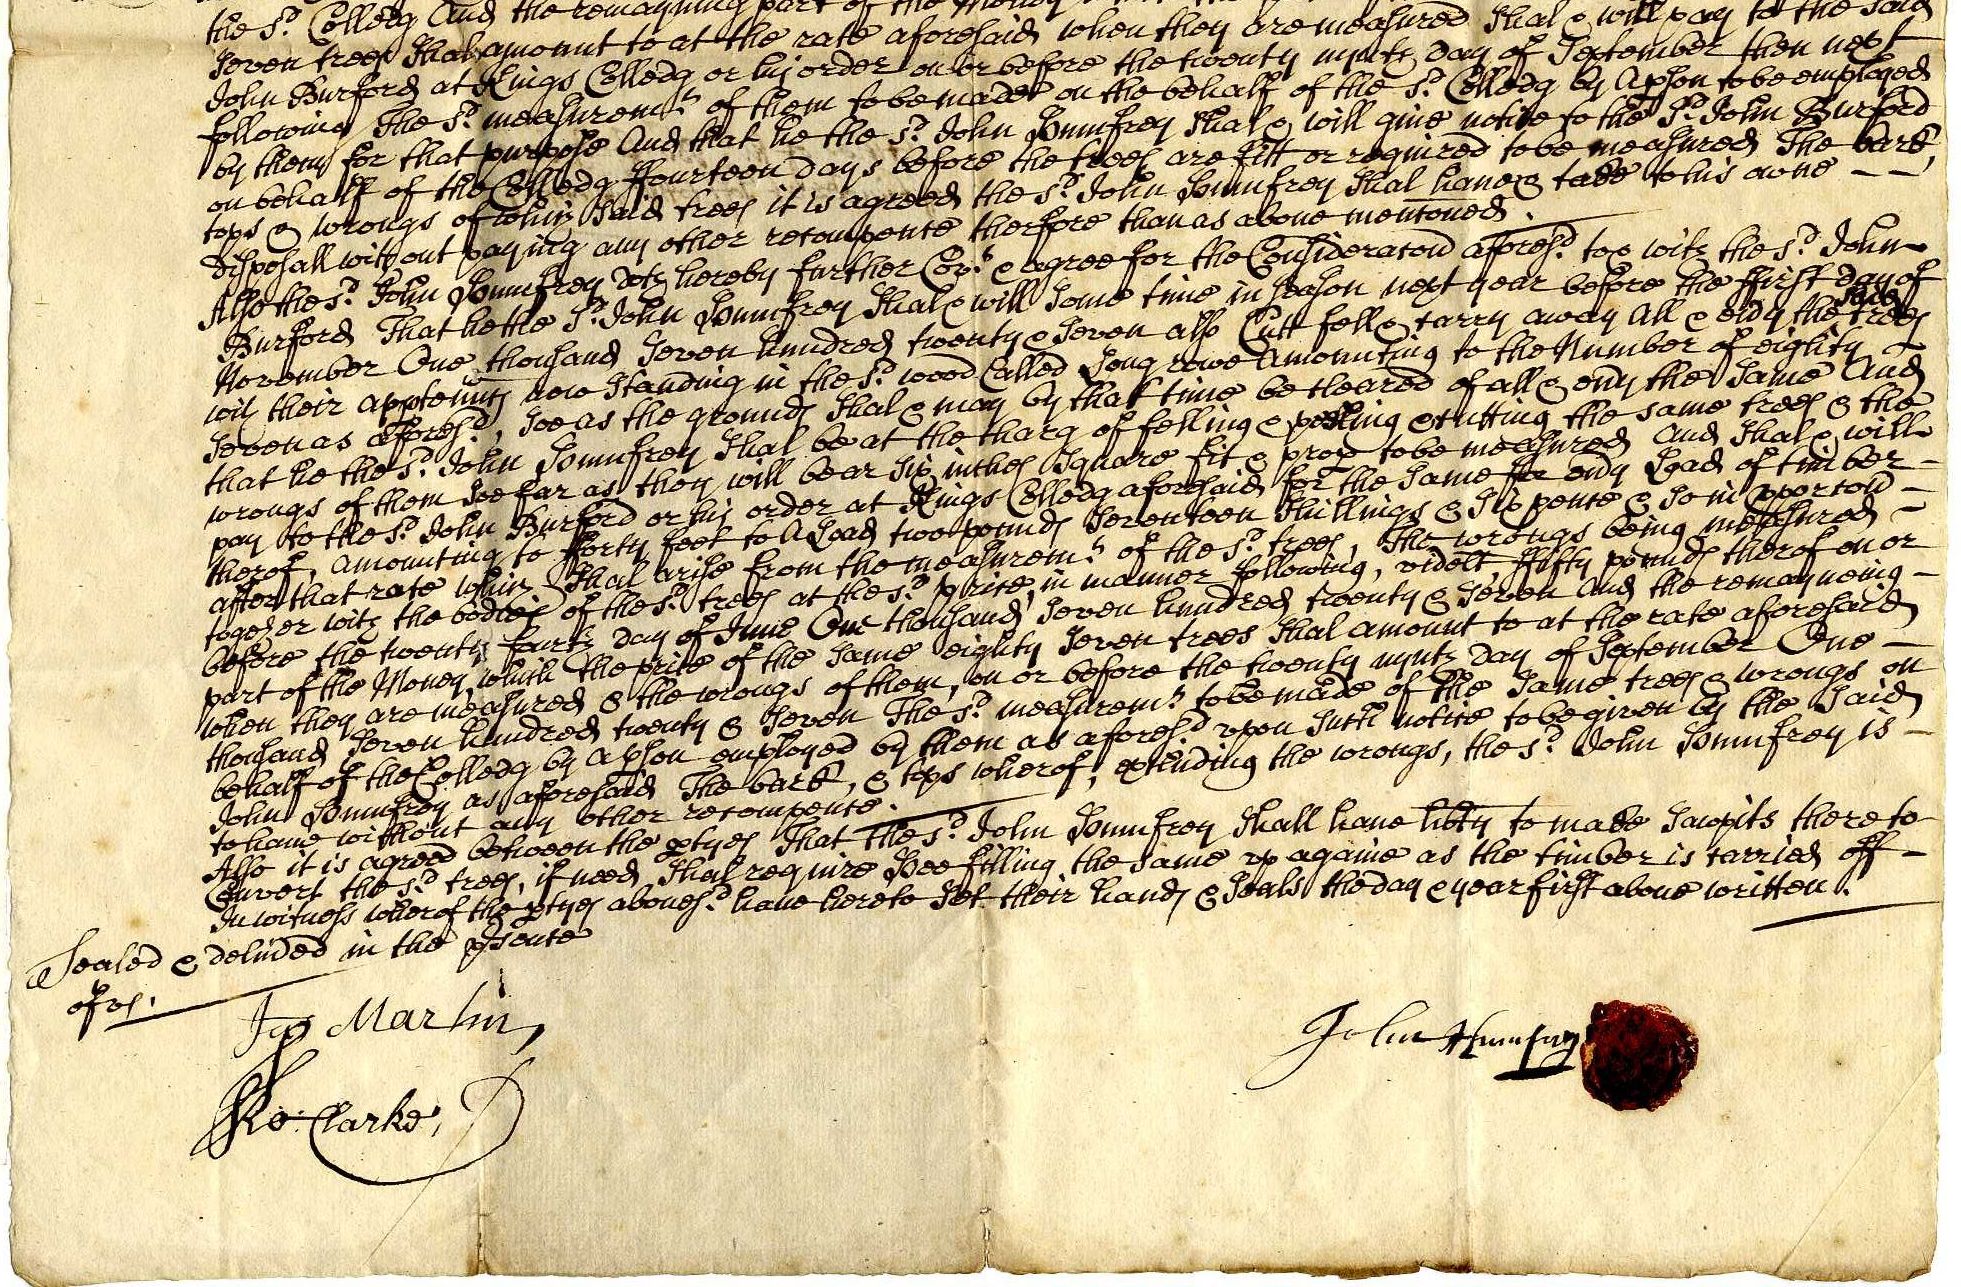 the sd. Colledg And the remayning part of the Money
seven trees shal amount to at the rate aforesaid when they are measured shal & will pay to the said
John Burford at Kings Colledg or his order on or before the twenty nynth day of September then next
following The sd. measuremt. of them to be made on the behalf of the sd. Colledg by a pson to be employed
by them for that purpose And that he the sd. John Humfrey shal & will give notice to the sd. John Burford
on behalf of the Colledg ffourteen days before the trees are fitt or required to be measured The bark,
tops & wrongs of which said trees it is agreed the sd. John Humfrey shal have & take to his owne - -
disposall without paying any other recompence therfore than as above mentoned.
Also the sd. John Humfrey doth hereby further Covt. & agree for the Consideraton aforesd. to & with the sd. John
Burford That he the sd. John Humfrey shal & will some time in season next year before the ffirst day of
November One thousand seven hundred twenty & seven also Cutt fell & carry away all & evry the said trees
with their apptenncs now standing in the sd. wood Called Long rowe amounting to the Number of eighty -
seven as aforesd., soe as the grounds shal & may by that time be cleared of all & evry the same And
that he the sd. John Humfrey shal be at the charg of felling & peeling & cutting the same trees & the
wrongs of them soe far as they will bear six inches square fit & prop to be measured And shal & will
pay to the sd. John Burford or his order at Kings Colledg aforesaid for the same for evry Load of timber -
therof, amounting to fforty foot to a Load two pounds seventeen shillings & six pence & so in pporton -
after that rate which shal arise from the measuremt. of the sd. trees, The wrongs being measured -
together with the bodies of the sd. trees at the sd. price, in manner following, videlt ffifty pounds therof on or
before the twenty fourth day of June One thousand seven hundred twenty & seven And the remayneing -
part of the Money, which the price of the same eighty seven trees shal amount to at the rate aforesaid
when they are measured & the wrongs of them, on or before the twenty nynth day of September One -
thousand seven hundred twenty & seven The sd. measuremt. to be made of the same trees & wrongs on
behalf of the Colledg by a pson employed by them as aforesd. upon such notice to be given by the said
John Humfrey as aforesaid The bark, & tops wherof, extending the wrongs, the sd. John Humfrey is -
to have without any other recompence.
Also it is agreed between the ptyes That the sd. John Humfrey shall have libty to make sawpits there to
Convert the sd. trees, if need shal require hee filling the same up againe as the timber is carried off -
In witness wherof the ptyes abovesd. have hereto set their hands & seals the day & year first above written.
Sealed & delivded in the psence
of us.
Jos Martin,
Ro: Clarke,
John Humfrey